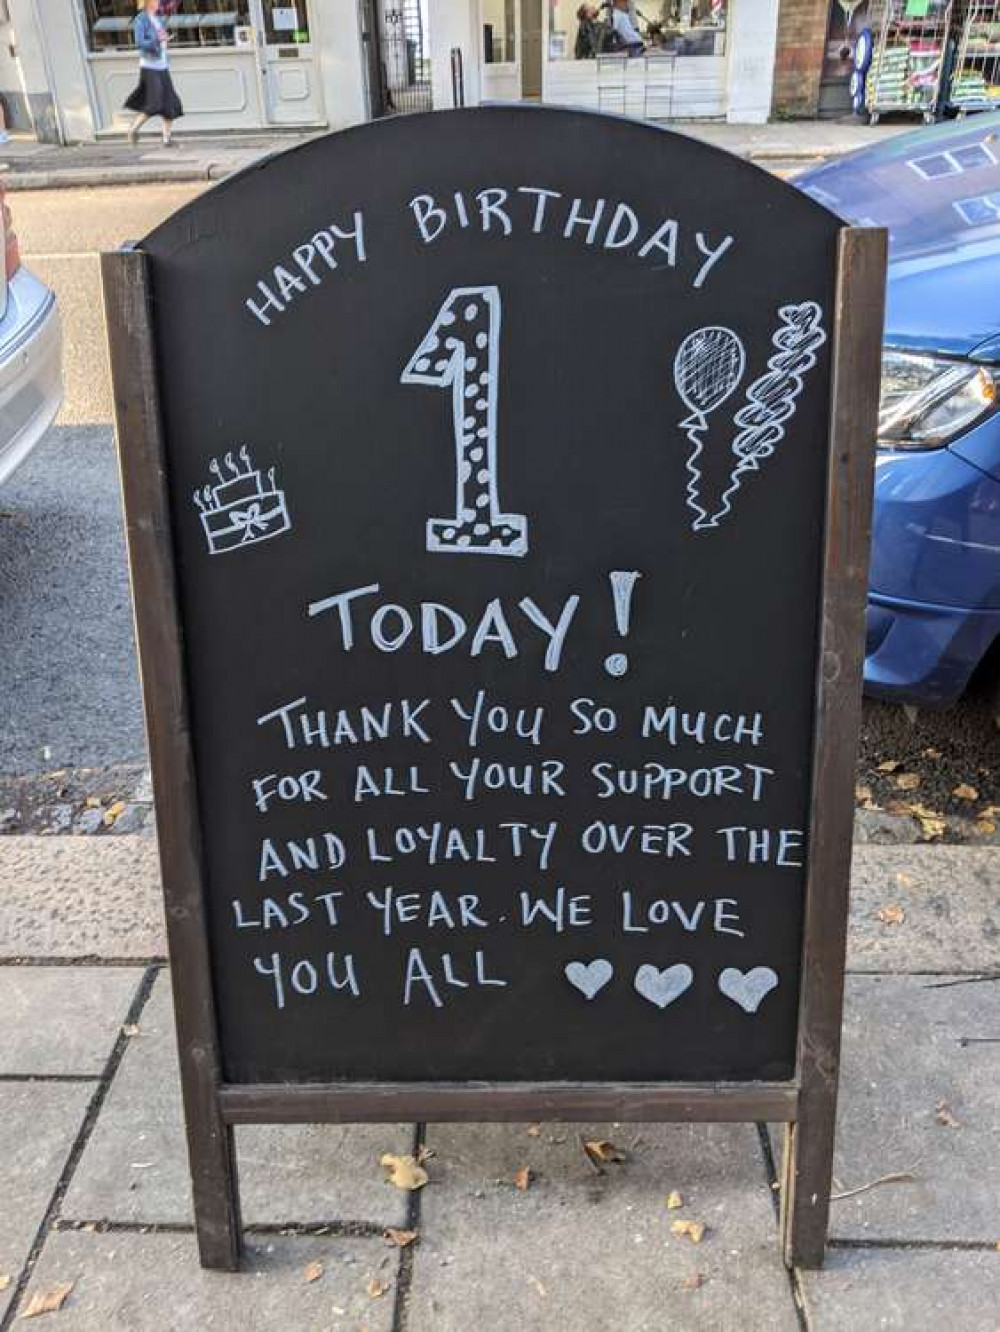 HAPPY BIRTHDAY
1
TODAY!
THANK YOU SO MUCH
FOR ALL YOUR SUPPORT
AND LOYALTY OVER THE
LAST YEAR. WE LOVE
YOU ALL